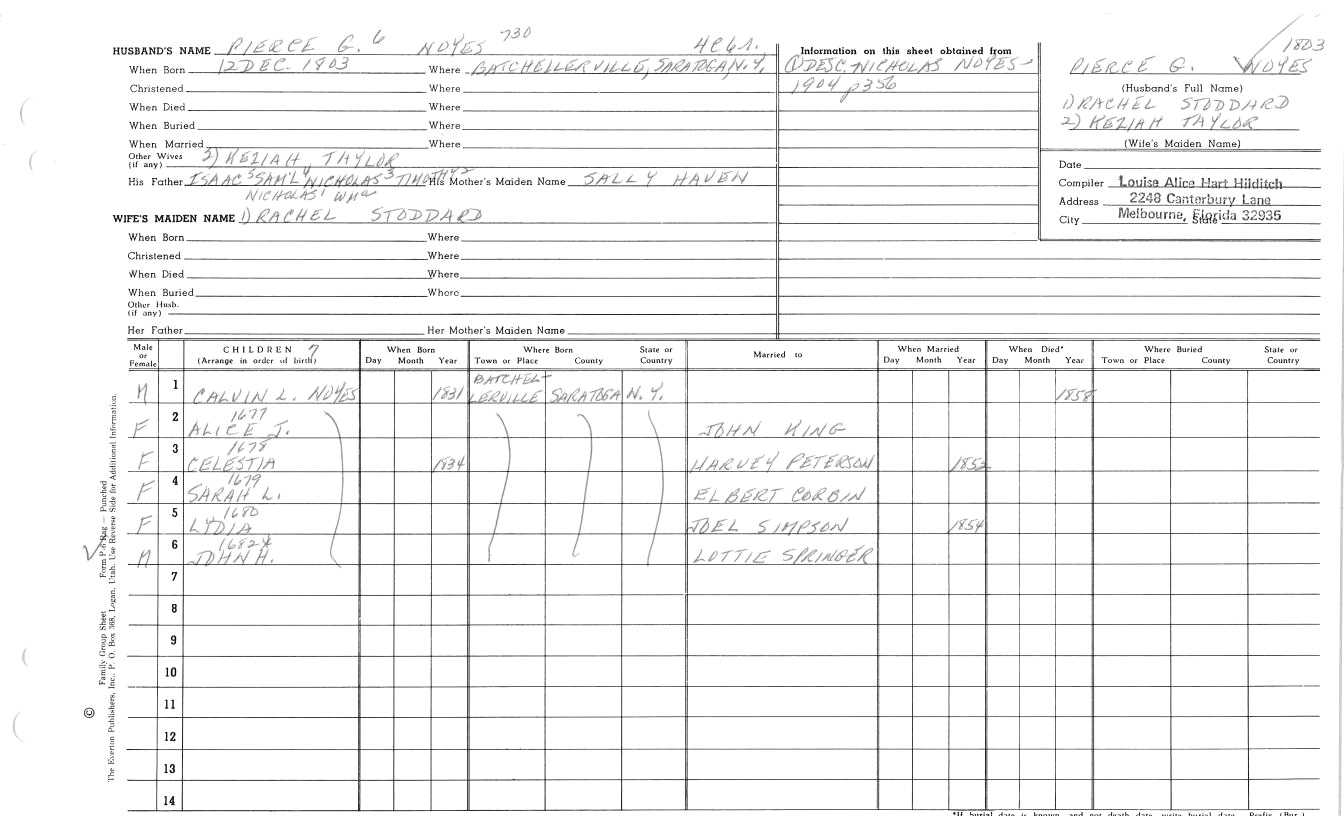 1803
HUSBAND'S NAME PIERCE G. 6 NOYES 730
Information on this sheet obtained from
When Born 12 DEC. 1803 Where BATCHELLERVILLE, SARATOGA, N.Y.
① DESC. NICHOLAS NOYES
PIERCE G. NOYES
Christened Where
1904 p356
(Husband's Full Name)
When Died Where
1) RACHEL STODDARD
When Buried Where
2) KEZIAH TAYLOR
When Married Where
(Wife's Maiden Name)
Other Wives
(if any) 2) KEZIAH TAYLOR
Date
His Father ISAAC 5 SAM'L 4 NICHOLAS 3 TIMOTHY 2 His Mother's Maiden Name SALLY HAVEN
Compiler Louise Alice Hart Hilditch
NICHOLAS 1 Wm a
Address 2248 Canterbury Lane
WIFE'S MAIDEN NAME 1) RACHEL STODDARD
City Melbourne, Florida 32935 State
When Born Where
Christened Where
When Died Where
When Buried Where
Other Husb.
(if any)
Her Father Her Mother's Maiden Name
Male or Female
CHILDREN 7
(Arrange in order of birth)
When Born
Day Month Year
Where Born
Town or Place County
State or Country
Married to
When Married
Day Month Year
When Died*
Day Month Year
Where Buried
Town or Place County
State or Country
M 1 CALVIN L. NOYES 1831 BATCHEL-LERVILLE SARATOGA N.Y. 1858
F 2 1677 ALICE J. JOHN KING
F 3 1678 CELESTIA 1834 HARVEY PETERSON 1852
F 4 1679 SARAH L. ELBERT CORBIN
F 5 1680 LYDIA JOEL SIMPSON 1854
M 6 1682* JOHN H. LOTTIE SPRINGER
7
8
9
10
11
12
13
14
*If burial date is known, and not death date, write burial date. Prefix (Bur.)
© Family Group Sheet Form P-6 Rag — Punched
The Everton Publishers, Inc., P. O. Box 368, Logan, Utah. Use Reverse Side for Additional Information.